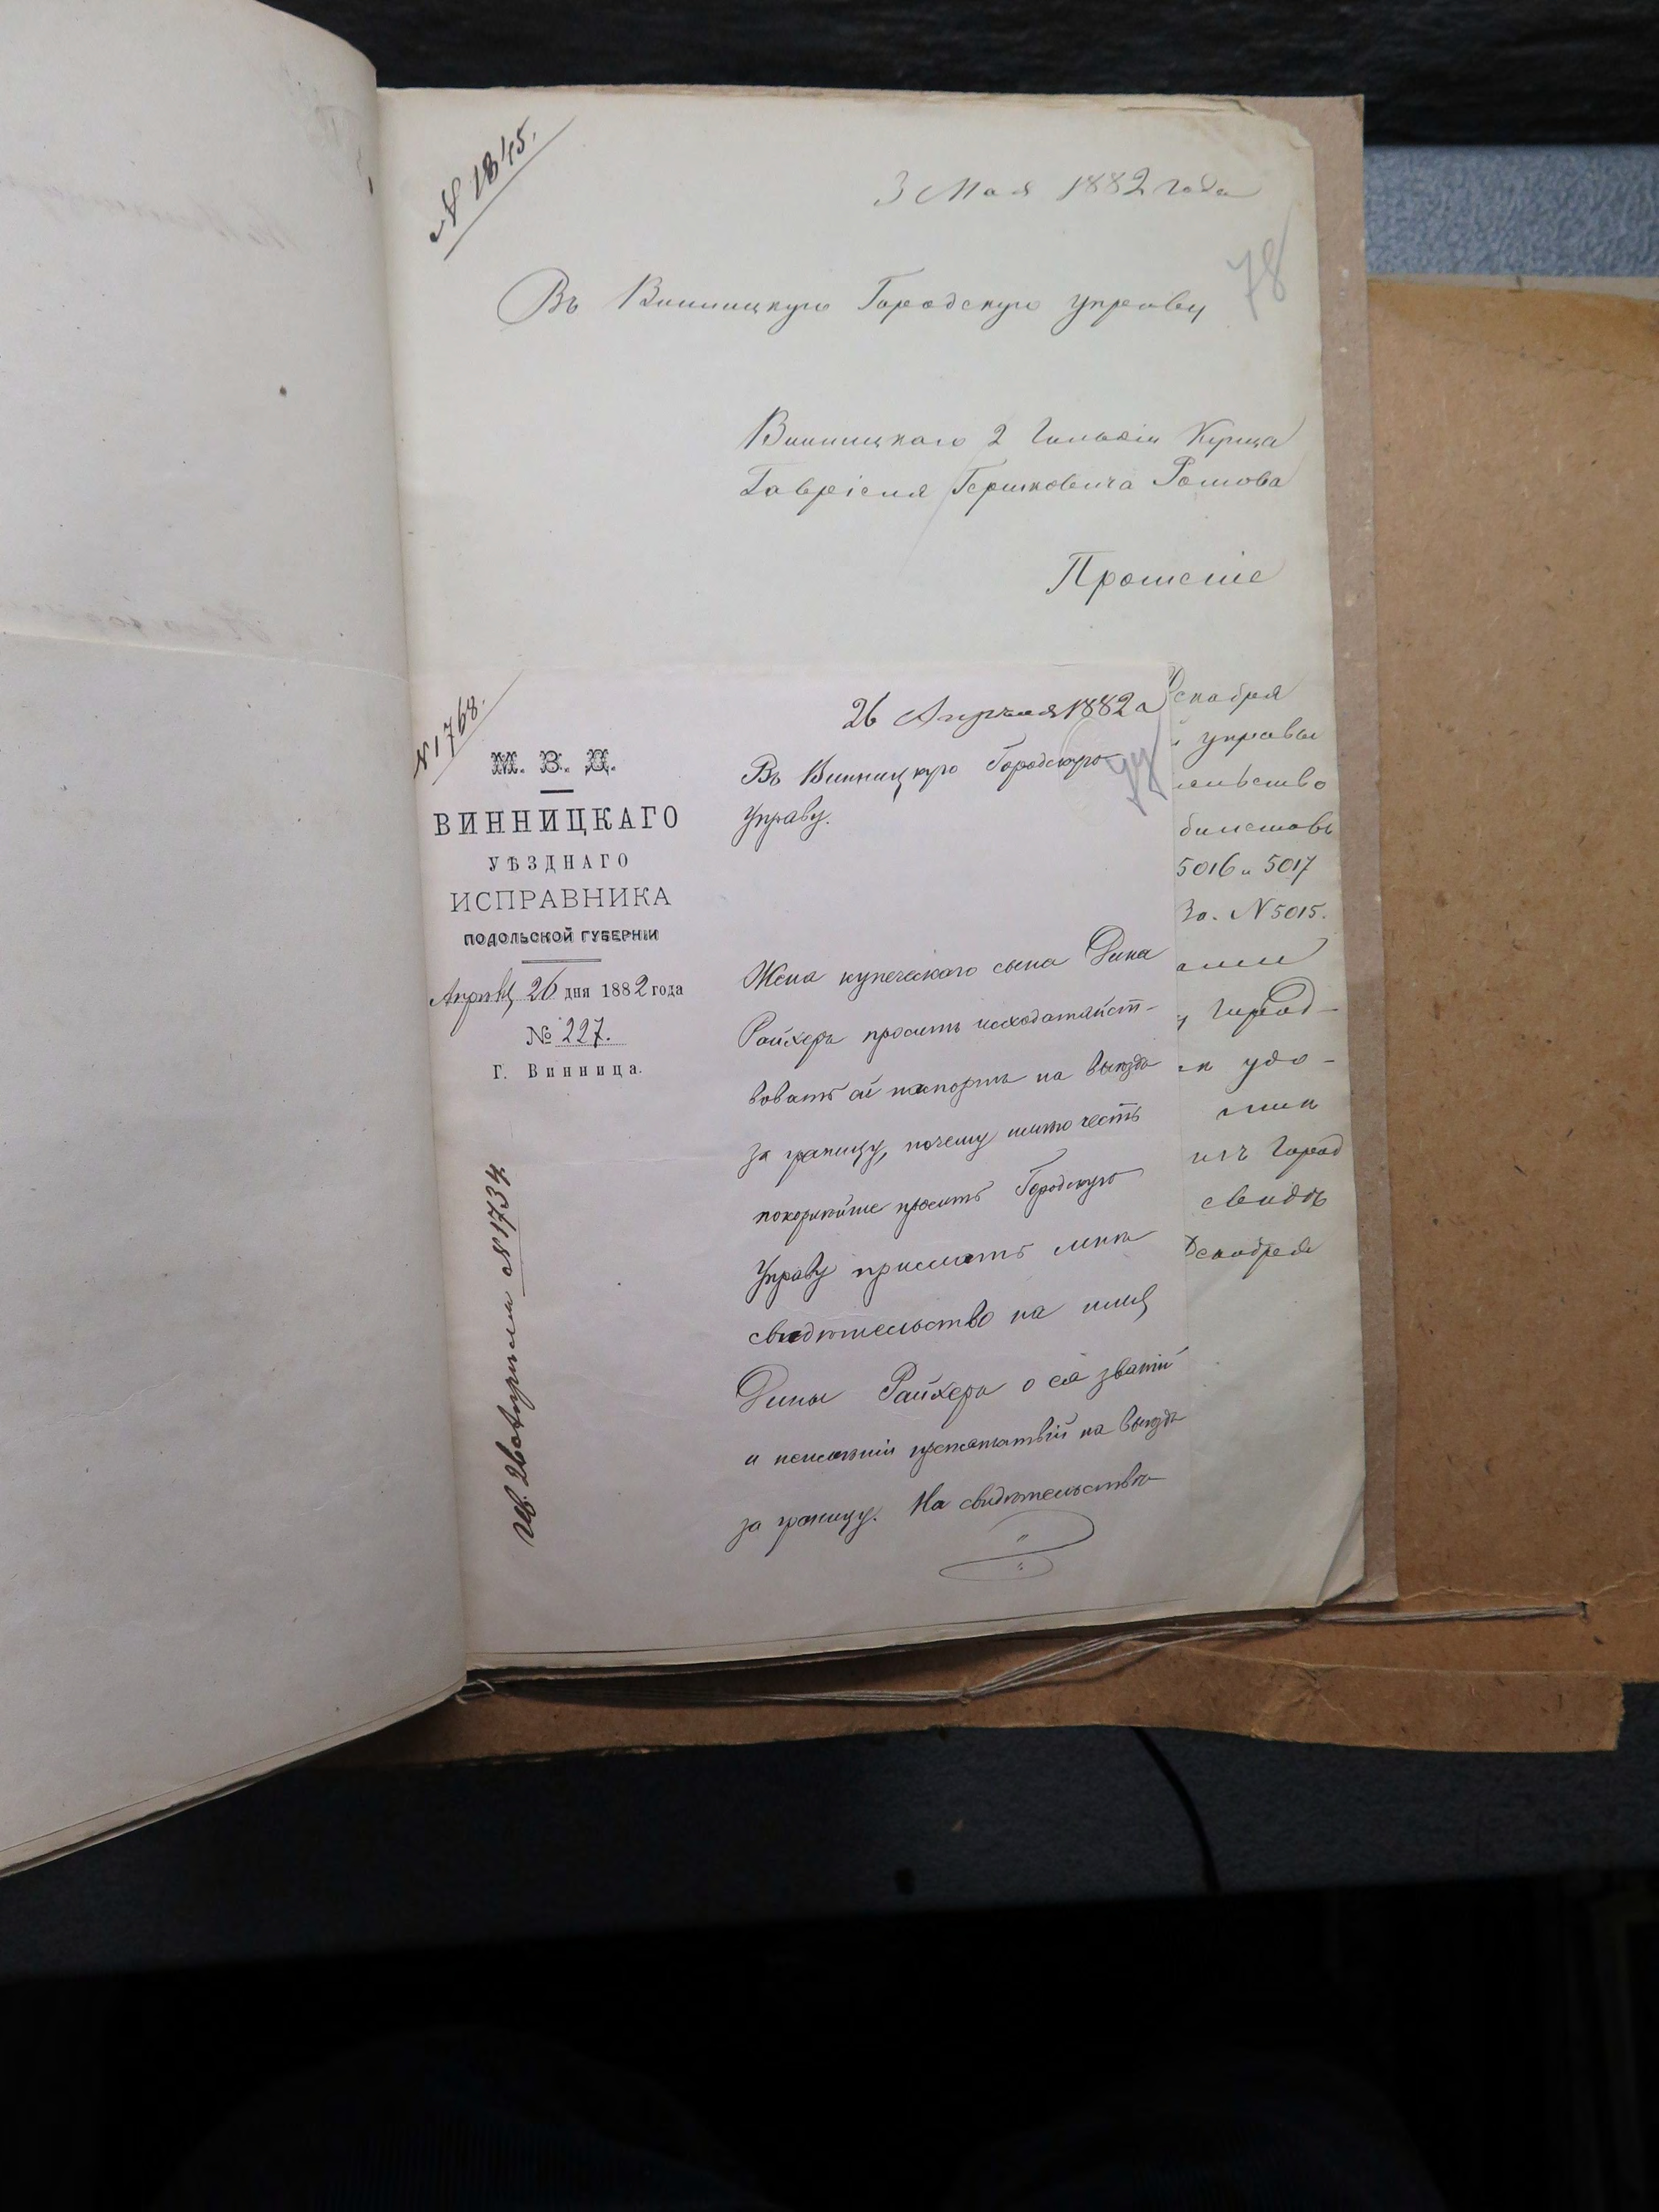 № 1845.
3 Мая 1882 года
78
Въ Винницкую Городскую управу
Винницкаго 2 Гильдіи Купца
Гавріеля Гершковича Ротова
Прошеніе
Декабря
управы
тельство
билетовъ
5016 и 5017
За. № 5015.
Город-
удо-
Город
свидѣ
Декабря
№ 1768.
26 Апрѣля 1882 г
77
М. В. Д.
ВИННИЦКАГО
УѢЗДНАГО
ИСПРАВНИКА
ПОДОЛЬСКОЙ ГУБЕРНІИ
Апрѣля 26 дня 1882 года
№ 227.
Г. Винница.
26 Апрѣля № 1734
Въ Винницкую Городскую
Управу.
Жена купеческаго сына Дина
Райхеръ проситъ исходатайст-
вовать ей паспортъ на выѣздъ
за границу, почему имѣю честь
покорнѣйше просить Городскую
Управу прислать мнѣ
свидѣтельство на имя
Дины Райхеръ о ея званіи
и неимѣніи препятствій на выѣздъ
за границу. На свидѣтельствѣ